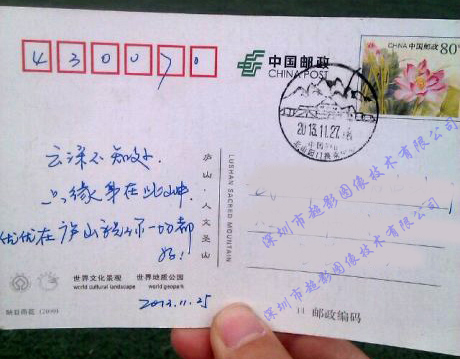 430070
中国邮政
CHINA POST
CHINA 中国邮政 80分
2013.11.27
云深不知处
只缘身在此山中
优优在庐山祝你一切都
好!
2013.11.25
庐山·人文圣山
LUSHAN SACRED MOUNTAIN
世界文化景观
world cultural landscape
世界地质公园
world geopark
深圳市超影图像技术有限公司
深圳市超影图像技术有限公司
邮政编码